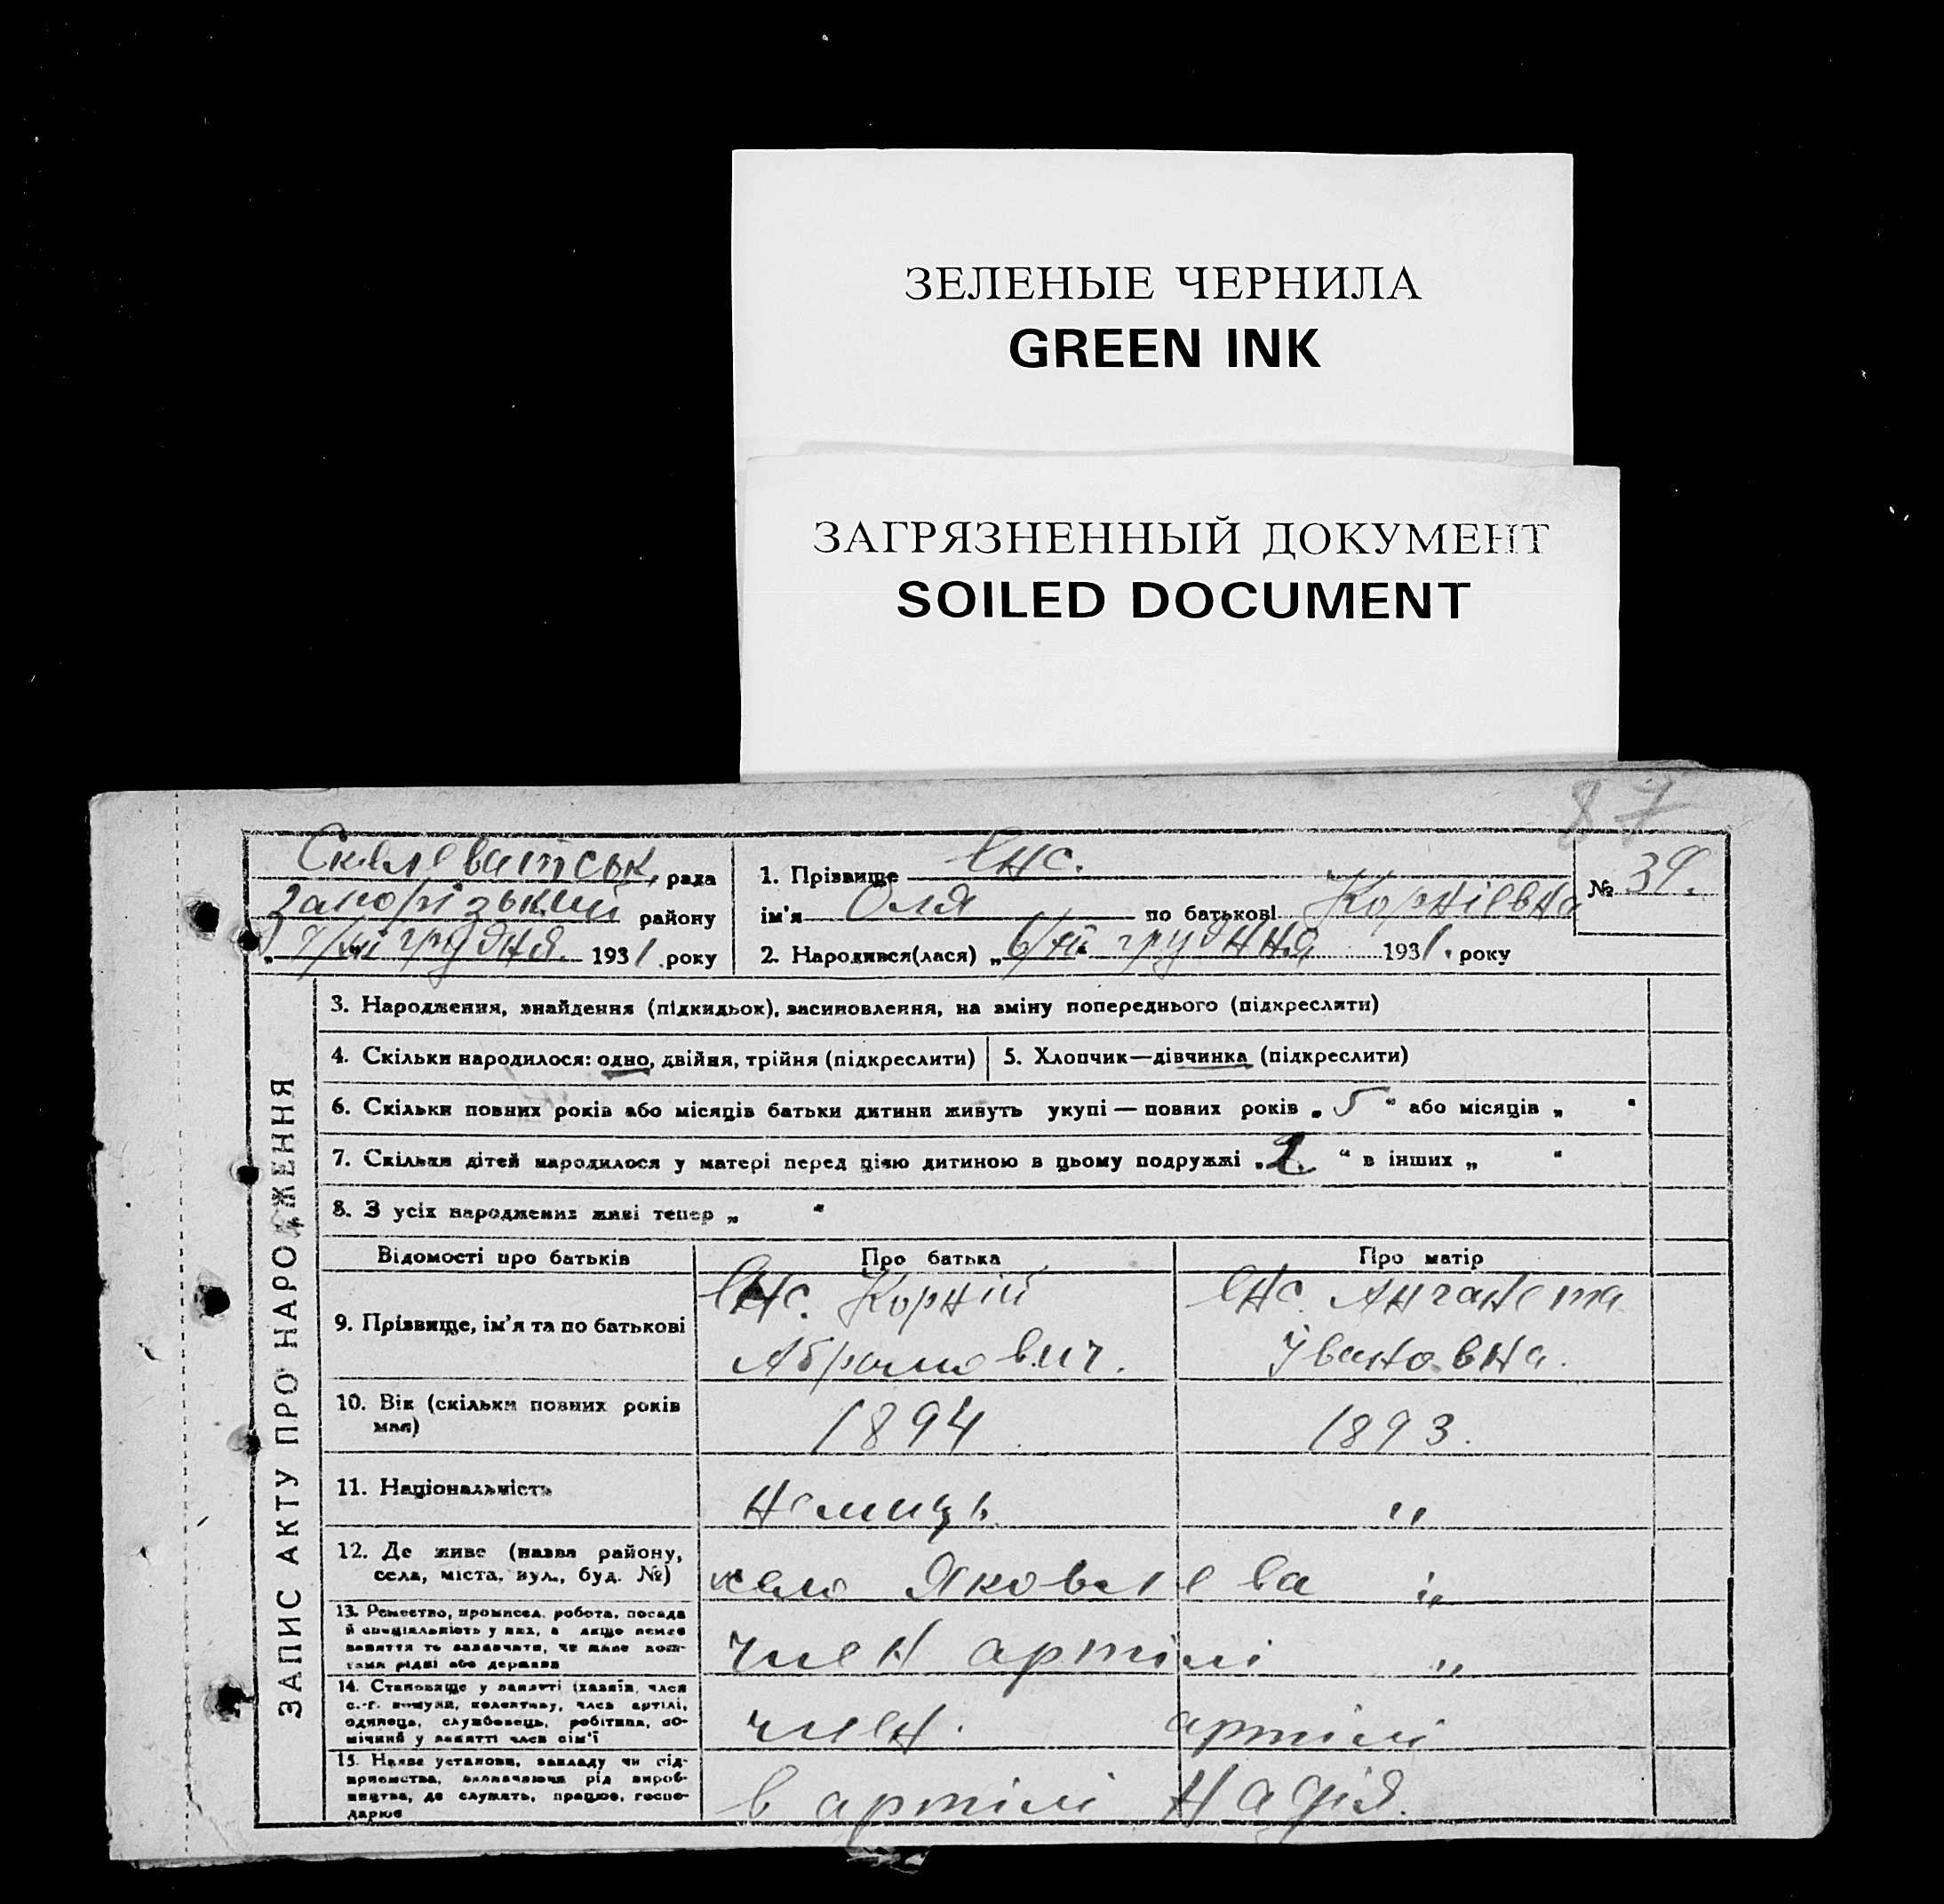 ЗЕЛЕНЫЕ ЧЕРНИЛА
GREEN INK
ЗАГРЯЗНЕННЫЙ ДОКУМЕНТ
SOILED DOCUMENT
87
Скелеватськ. рада
Запорізький району
грудня 1931 року
1. Прізвище Єнс.
ім'я Оля по батькові Корніївна
№ 39.
2. Народився(лася) „6/XII грудння 1931. року
ЗАПИС АКТУ ПРО НАРОДЖЕННЯ
3. Народження, знайдення (підкидьок), засиновлення, на зміну попереднього (підкреслити)
4. Скільки народилося: одно, двійня, трійня (підкреслити)
5. Хлопчик—дівчинка (підкреслити)
6. Скільки повних років або місяців батьки дитини живуть укупі — повних років „ 5 “ або місяців „ “
7. Скільки дітей народилося у матері перед цією дитиною в цьому подружжі „ “ в інших „ “
8. З усіх народжених живі тепер „ “
Відомості про батьків Про батька Про матір
9. Прізвище, ім'я та по батькові
Єнс. Корній
Абрамович.
Єнс. Анганета
Івановна.
10. Вік (скільки повних років має)
1894
1893.
11. Національність
немиць
"
12. Де живе (назва району, села, міста, вул., буд. №)
село Яковлева "
13. Ремество, промисел, робота, посада й спеціяльність у них, а якщо немає заняття то зазначити, чи живе коштами рідні або держави
член артілі "
14. Становище у занятті (хазяїн, член с.-г. комуни, колективу, член артілі, одинець, службовець, робітник, помічний у занятті член сім'ї
член. артілі
15. Назва установи, закладу чи підприємства, зазначаючи рід виробництва, де служить, працює, господарює
в артілі Надія.